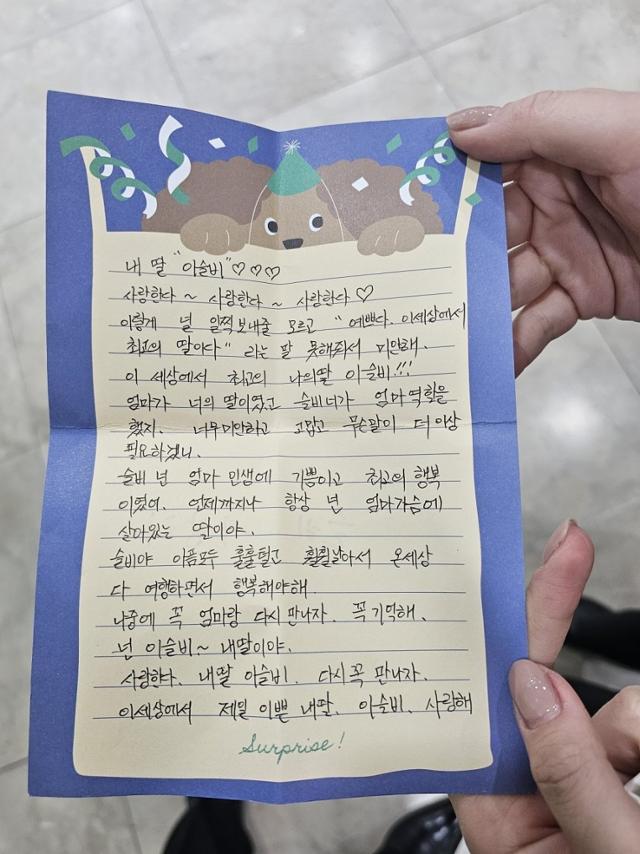 내 딸 "이슬비"♡♡♡
사랑한다 ~ 사랑한다 ~ 사랑한다 ♡
이렇게 널 일찍 보내줄 모르고 "예쁘다. 이세상에서
최고의 딸이다" 라는 말 못해줘서 미안해.
이 세상에서 최고의 나의딸 이슬비!!!
엄마가 너의 딸이였고 슬비너가 엄마역할을
했지. 너무미안하고 고맙고 무슨말이 더이상
필요하겠니.
슬비 넌 엄마 인생에 기쁨이고 최고의 행복
이였어. 언제까지나 항상 넌 엄마가슴에
살아있는 딸이야.
슬비야 아픔모두 훌훌털고 훨훨날아서 온세상
다 여행하면서 행복해야해.
나중에 꼭 엄마랑 다시 만나자. 꼭기억해.
넌 이슬비~ 내딸이야.
사랑한다. 내딸 이슬비. 다시꼭 만나자.
이세상에서 제일 이쁜 내딸. 이슬비. 사랑해
Surprise!